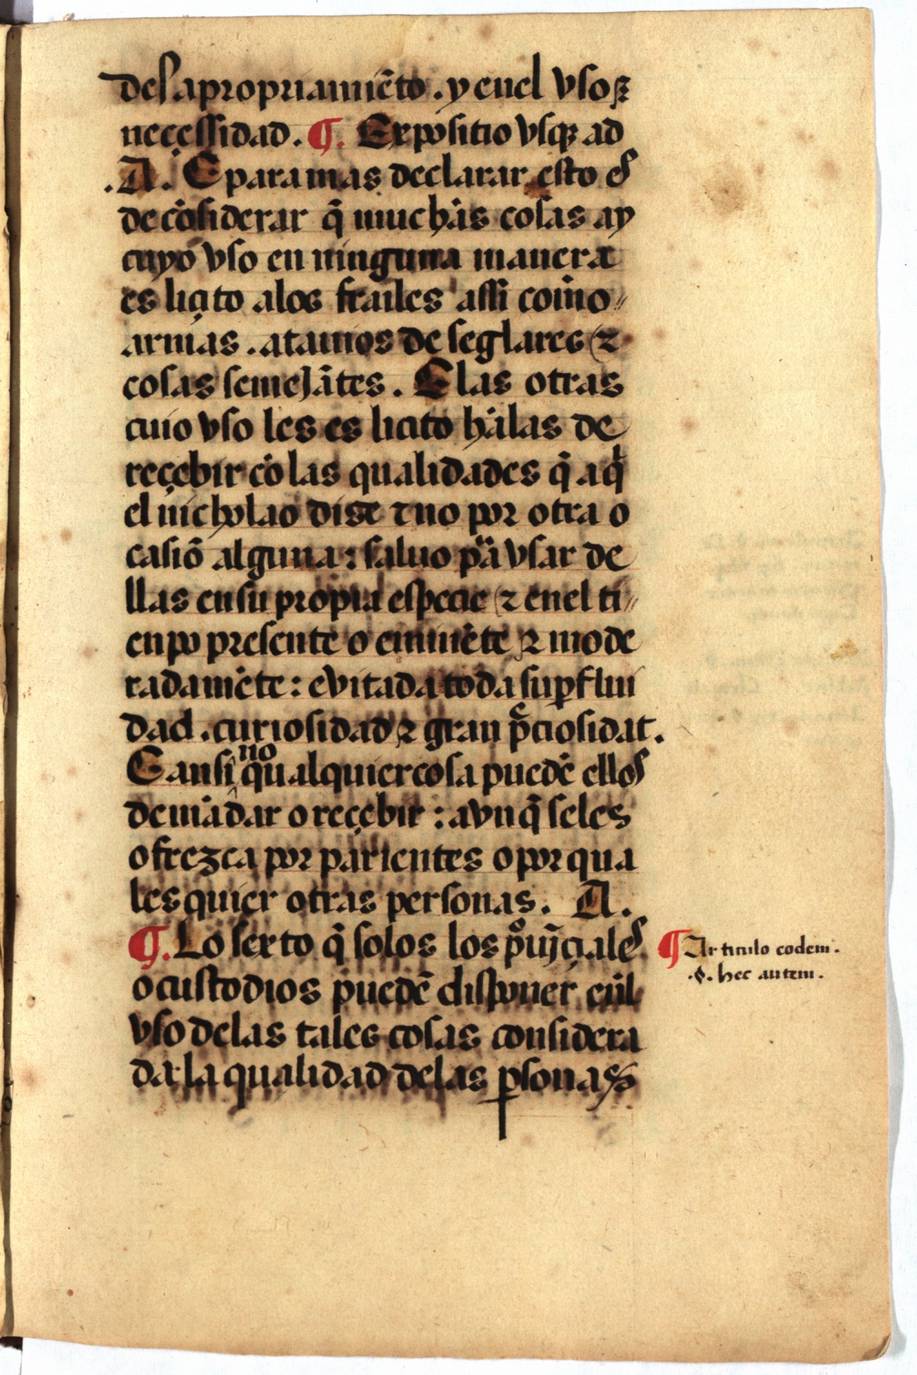 desapropriamiẽto . y enel vso ꝛ
neçessidad . ¶ . Expositio vsqꝫ ad
. A . E para mas declarar esto es
de cõsiderar q̃ muchas cosas ay
cuyo vso en ninguna manera
es liçito alos frailes assi como
armas . atamos de seglares ⁊
cosas semejãtes . E las otras
cuio vso les es licito hãlas de
reçebir cõ las qualidades q̃ aq̃
el nicholao dise ⁊ no por otra o
casiõ alguna : saluo pa vsar de
llas en su propia especie ⁊ enel ti
enpo presente o eminẽte ⁊ mode
radamẽte : evitada toda supꝑflui
dad . curiosidad ⁊ gran p̃ciosidat .
E ansi no qualquier cosa puedẽ ellos
demãdar o reçebir : avn q̃ seles
ofrezca por parientes o por qua
les quier otras personas . A .
¶ . Lo sexto q̃ solos los p̃uĩçiales
o custodios puedẽ disponer enl
vso delas tales cosas considera
da la qualidad delas ꝑsonas
¶ Articulo eodem .
. § . hec autem .